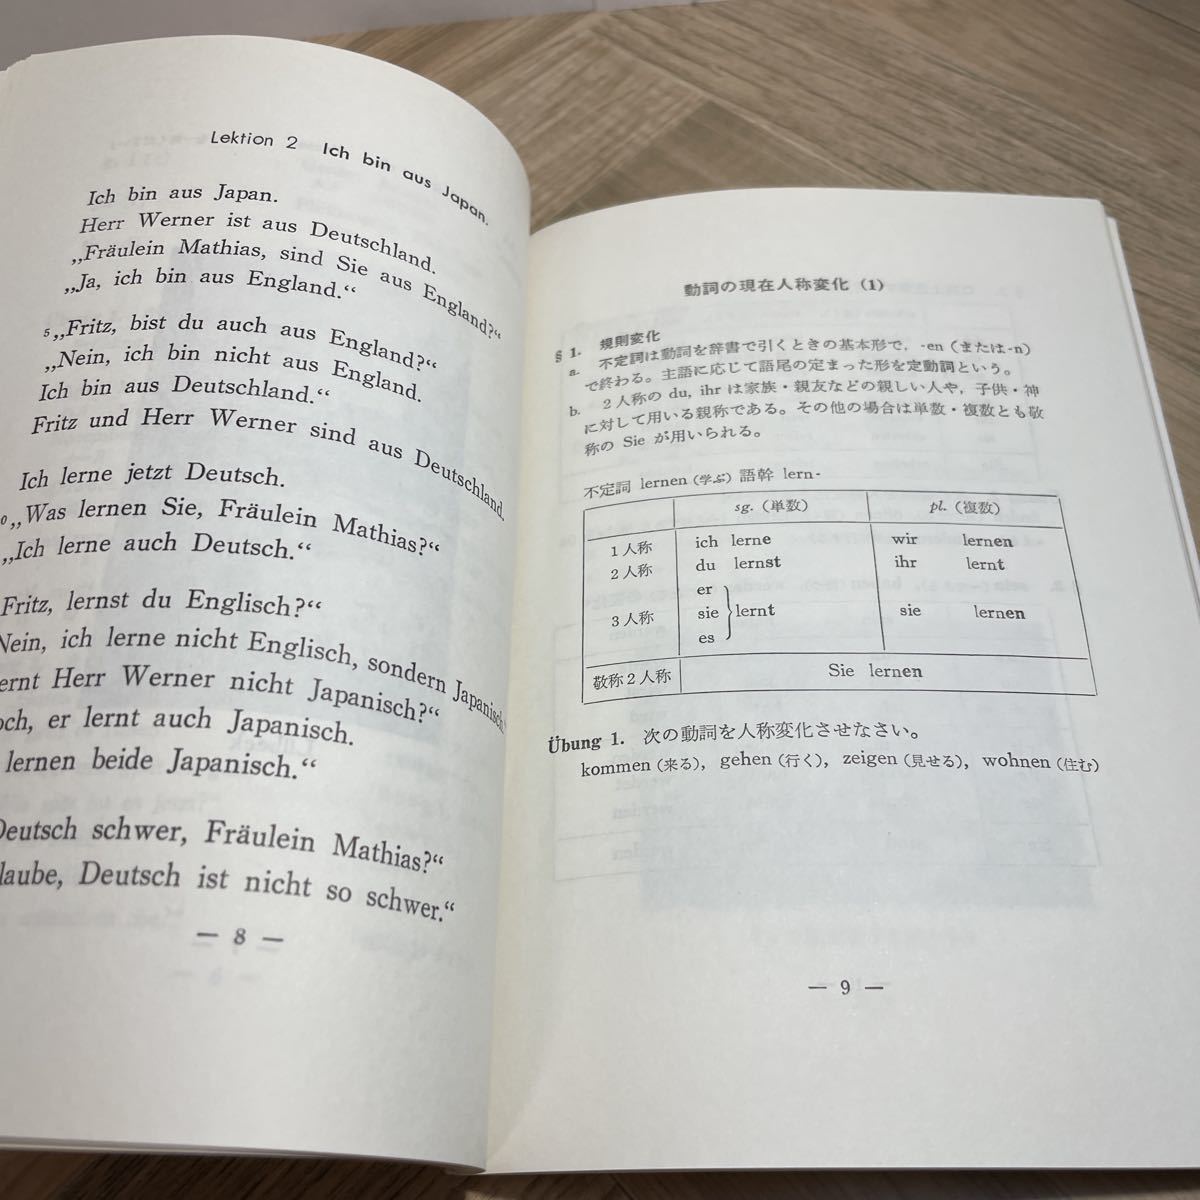 Lektion 2 Ich bin aus Japan.
Ich bin aus Japan.
Herr Werner ist aus Deutschland.
„Fräulein Mathias, sind Sie aus England?“
„Ja, ich bin aus England.“
5 „Fritz, bist du auch aus England?“
„Nein, ich bin nicht aus England.
Ich bin aus Deutschland.“
Fritz und Herr Werner sind aus Deutschland.
Ich lerne jetzt Deutsch.
0 „Was lernen Sie, Fräulein Mathias?“
„Ich lerne auch Deutsch.“
Fritz, lernst du Englisch?“
Nein, ich lerne nicht Englisch, sondern Japanisch.“
ernt Herr Werner nicht Japanisch?“
och, er lernt auch Japanisch.
lernen beide Japanisch.“
Deutsch schwer, Fräulein Mathias?“
laube, Deutsch ist nicht so schwer.“
— 8 —
動詞の現在人称変化 (1)
§ 1. 規則変化
a. 不定詞は動詞を辞書で引くときの基本形で, -en (または-n)
で終わる。主語に応じて語尾の定まった形を定動詞という。
b. 2人称の du, ihr は家族・親友などの親しい人や, 子供・神
に対して用いる親称である。その他の場合は単数・複数とも敬
称の Sie が用いられる。
不定詞 lernen (学ぶ) 語幹 lern-
sg. (単数) pl. (複数)
1人称 ich lerne wir lernen
2人称 du lernst ihr lernt
er
3人称 sie lernt sie lernen
es
敬称2人称 Sie lernen
Übung 1. 次の動詞を人称変化させなさい。
kommen (来る), gehen (行く), zeigen (見せる), wohnen (住む)
— 9 —